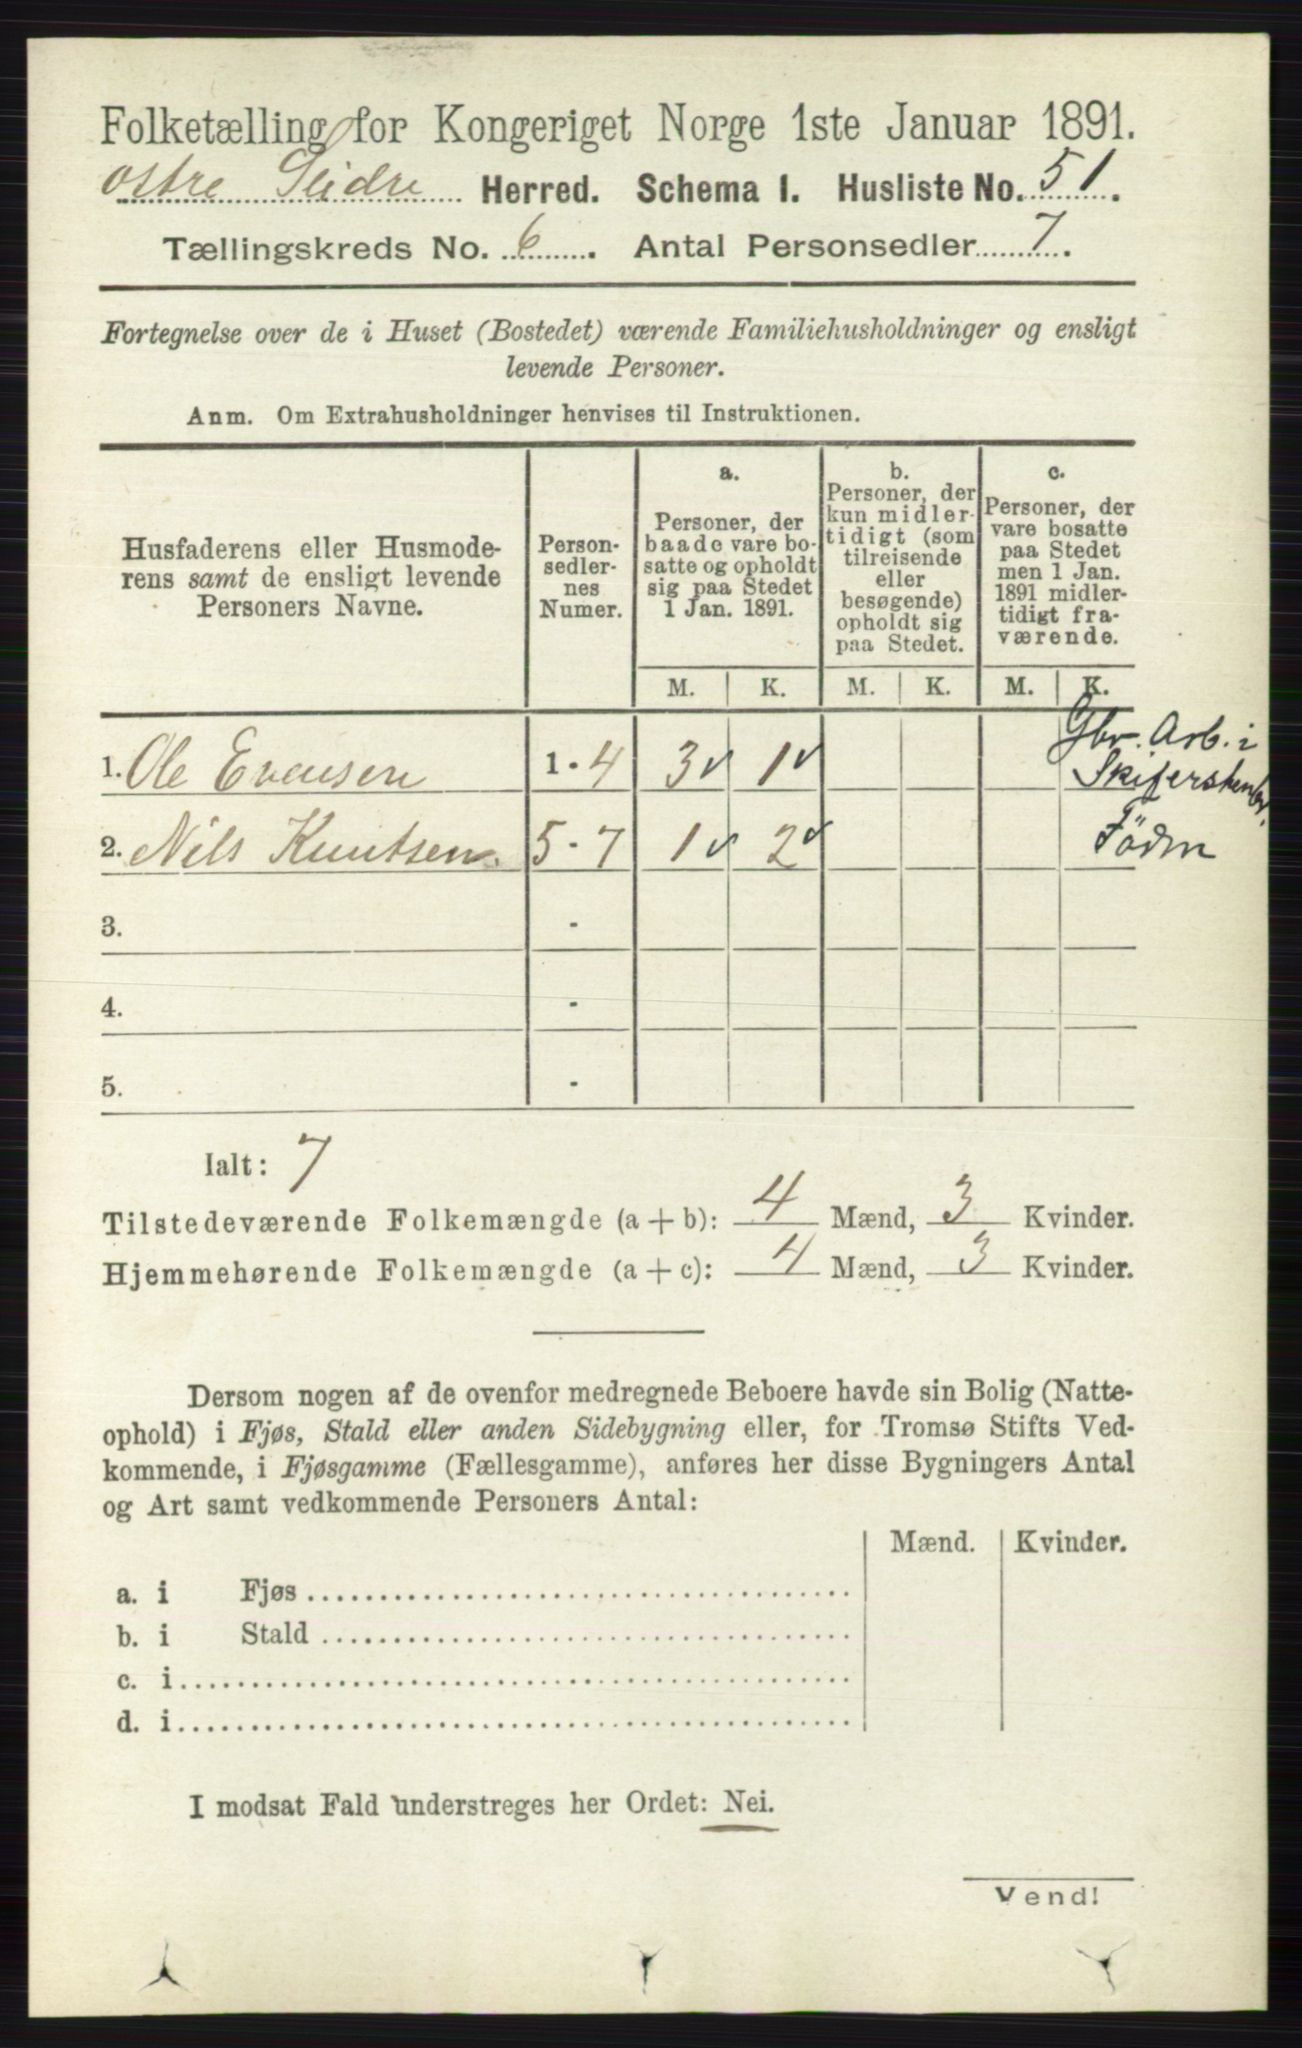 Folketælling for Kongeriget Norge 1ste Januar 1891.
Østre Slidre Herred. Schema 1. Husliste No. 51.
Tællingskreds No. 6. Antal Personsedler 7.
Fortegnelse over de i Huset (Bostedet) værende Familiehusholdninger og ensligt
levende Personer.
Anm. Om Extrahusholdninger henvises til Instruktionen.
Husfaderens eller Husmode-
rens samt de ensligt levende
Personers Navne.
Person-
sedler-
nes
Numer.
a.
Personer, der
baade vare bo-
satte og opholdt
sig paa Stedet
1 Jan. 1891.
b.
Personer, der
kun midler-
tidigt (som
tilreisende
eller
besøgende)
opholdt sig
paa Stedet.
c.
Personer, der
vare bosatte
paa Stedet
men 1 Jan.
1891 midler-
tidigt fra-
værende.
M. K. M. K. M. K.
1. Ole Evensen 1 - 4 3 1 Gbr. Arb. i
2. Nils Knutsen 5 - 7 1 2 Föder
3. -
4. -
5. -
Ialt: 7
Tilstedeværende Folkemængde (a + b): 4 Mænd, 3 Kvinder.
Hjemmehørende Folkemængde (a + c): 4 Mænd, 3 Kvinder.
Dersom nogen af de ovenfor medregnede Beboere havde sin Bolig (Natte-
ophold) i Fjøs, Stald eller anden Sidebygning eller, for Tromsø Stifts Ved-
kommende, i Fjøsgamme (Fællesgamme), anføres her disse Bygningers Antal
og Art samt vedkommende Personers Antal:
Mænd. Kvinder.
a. i Fjøs
b. i Stald
c. i
d. i
I modsat Fald understreges her Ordet: Nei.
Vend!